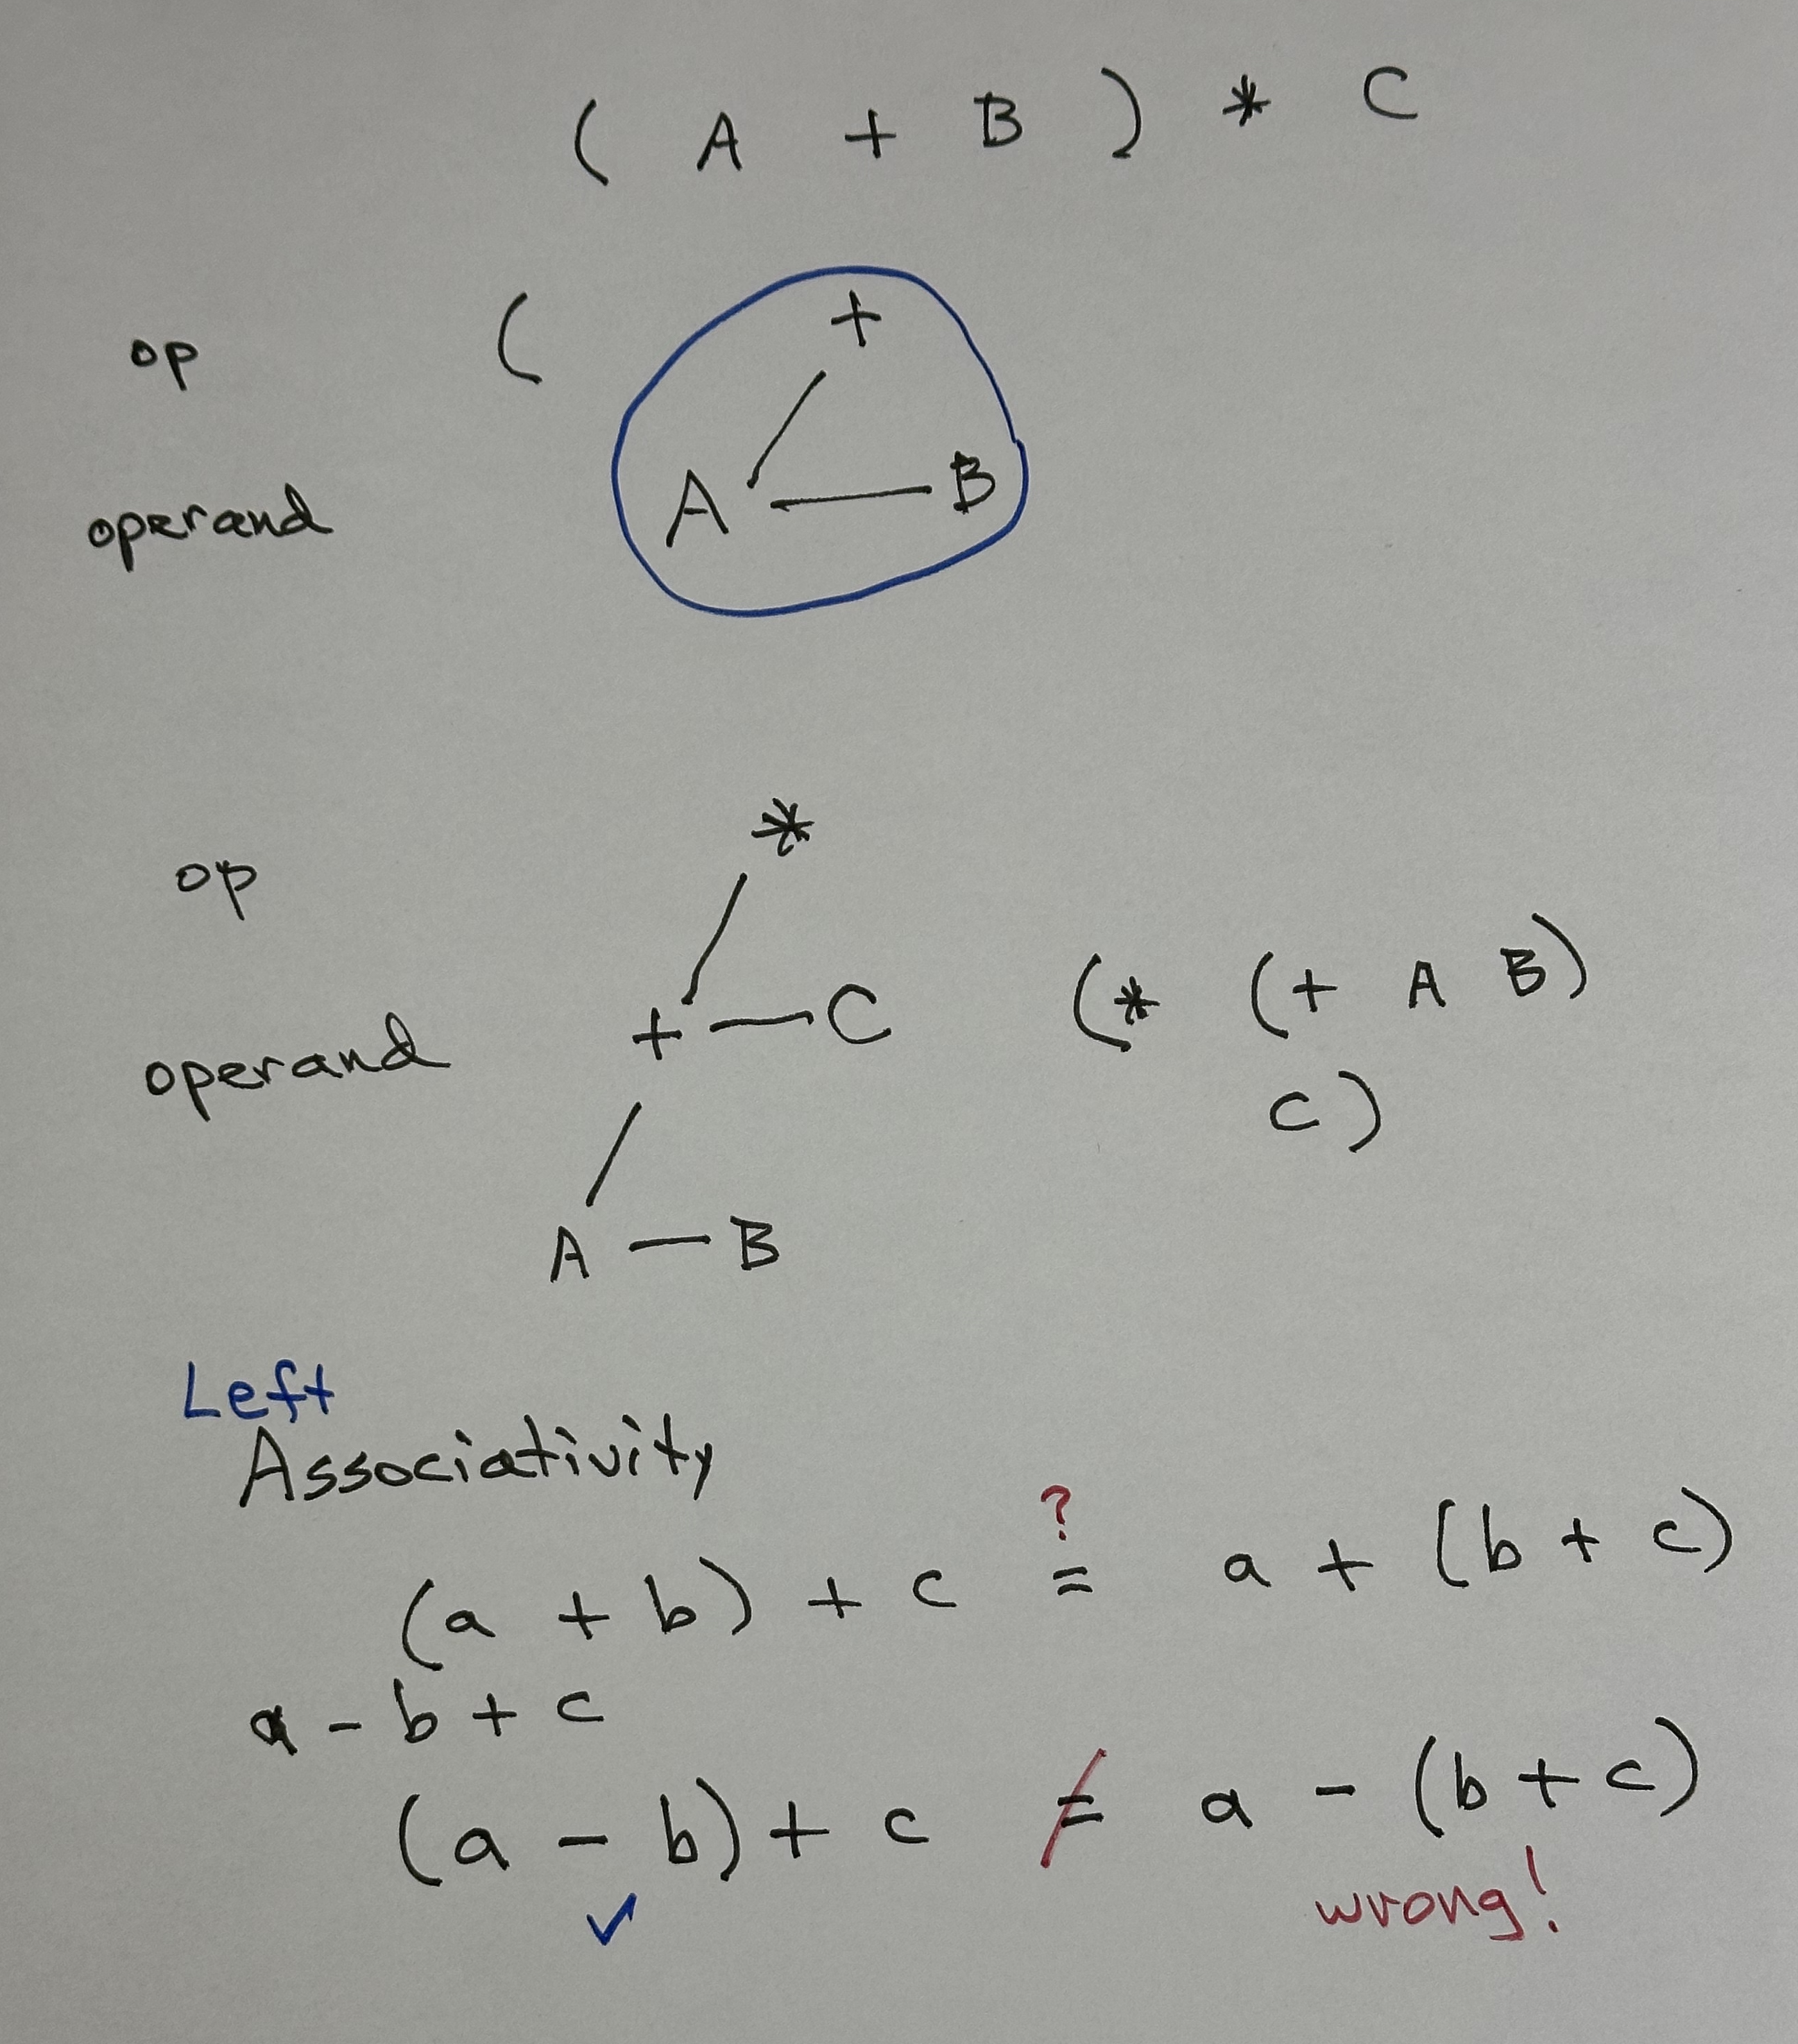 ( A + B ) * C
op ( +
operand A B
*
op
operand + C (* (+ A B)
C)
A B
Left
Associativity
?
(a + b) + c = a + (b + c)
a - b + c
(a - b) + c ≠ a - (b + c)
✓ wrong!